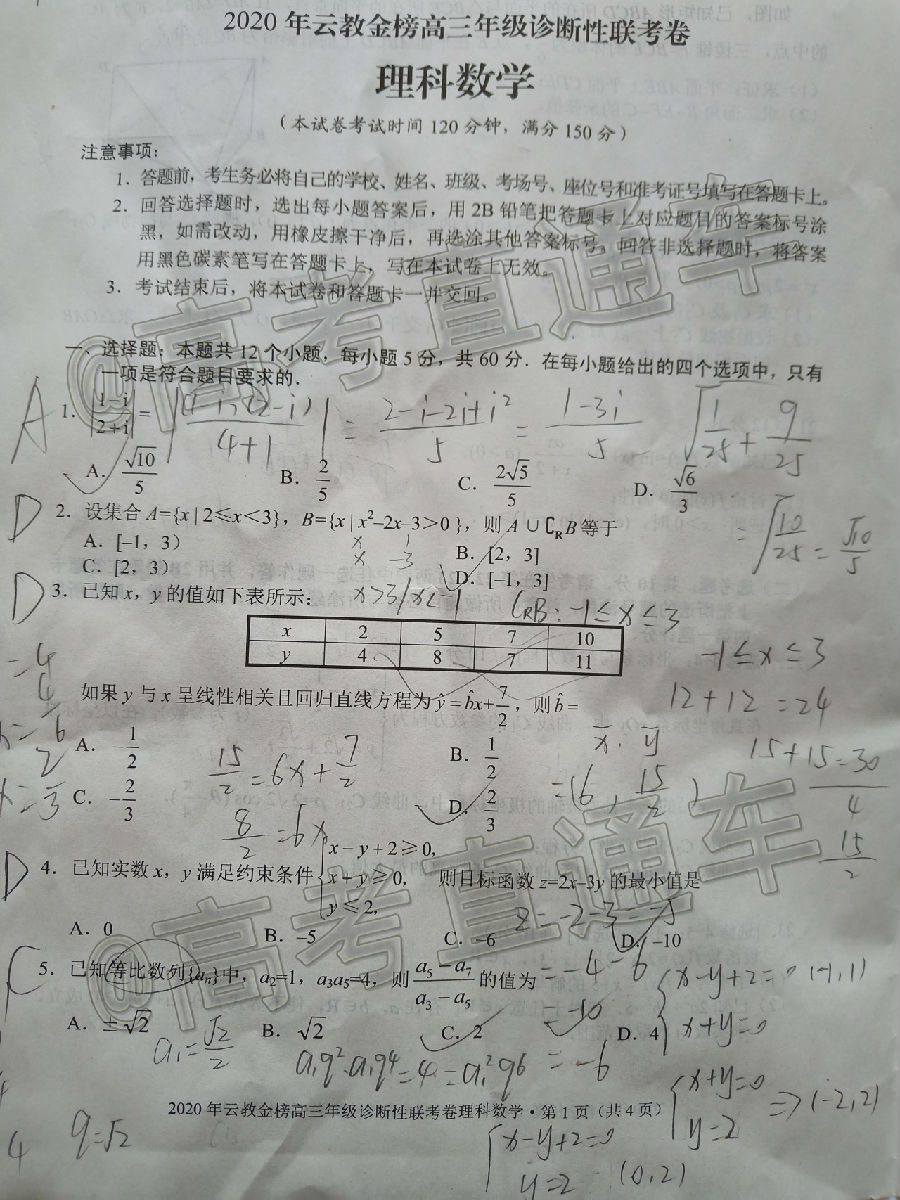 2020年云教金榜高三年级诊断性联考卷
理科数学
(本试卷考试时间120分钟，满分150分)
注意事项：
1．答题前，考生务必将自己的学校、姓名、班级、考场号、座位号和准考证号填写在答题卡上。
2．回答选择题时，选出每小题答案后，用2B铅笔把答题卡上对应题目的答案标号涂
黑，如需改动，用橡皮擦干净后，再选涂其他答案标号。回答非选择题时，将答案
用黑色碳素笔写在答题卡上，写在本试卷上无效。
3．考试结束后，将本试卷和答题卡一并交回。
@高考直通车
一、选择题：本题共12个小题，每小题5分，共60分．在每小题给出的四个选项中，只有
一项是符合题目要求的．
A
1．|(1-i)/(2+i)|= |(1-i)(2-i)/(4+1)| = (2-i-2i+i²)/5 = (1-3i)/5 √(1/25+9/25)
A．√10/5 B．2/5 C．2√5/5 D．√6/3
= √(10/25) = √10/5
D
2．设集合A={x|2≤x<3}，B={x|x²–2x–3>0}，则A∪∁RB等于
A．[–1，3) x 1 B．[2，3]
C．[2，3) x -3 D．[–1，3]
D
3．已知x，y的值如下表所示： x>3/x<-1 CRB: -1≤x≤3
x 2 5 7 10
y 4 8 7 11
-1≤x≤3
如果y与x呈线性相关且回归直线方程为ŷ=b̂x+7/2，则b̂= 12+12=24
A．-1/2 B．1/2 x̄. ȳ 15+15=30
15/2=6x+7/2 =(6, 15/2)
C．-2/3 D．2/3 4
8/2=6x 15/2
D
4．已知实数x，y满足约束条件{x–y+2≥0, x+y≥0, y≤2, 则目标函数z=2x–3y的最小值是
z=-2-3=-5
A．0 B．–5 C．–6 D．–10
=-4-6
C
5．已知等比数列{an}中，a2=1，a3a5=4，则(a5-a7)/(a3-a5)的值为
-10
{x-y+2=0 (-1,1)
x+y=0
A．±√2 B．√2 C．2 D．4
a1=√2/2 a1q².a1q4=4=a1²q6 =-6
{x+y=0
y=2 => (-2,2)
2020年云教金榜高三年级诊断性联考卷理科数学·第1页（共4页）
4 q=√2
{x-y+2=0
y=2 (0,2)
@高考直通车